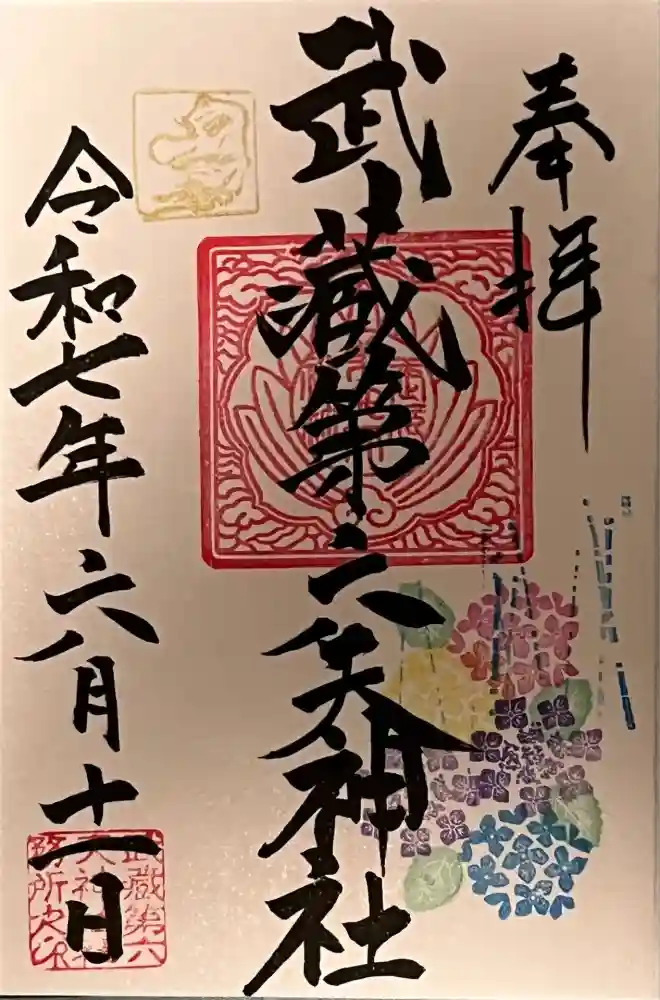 奉拝
武蔵第六天神社
令和七年六月十一日
武蔵第六
天神社社
務所之印